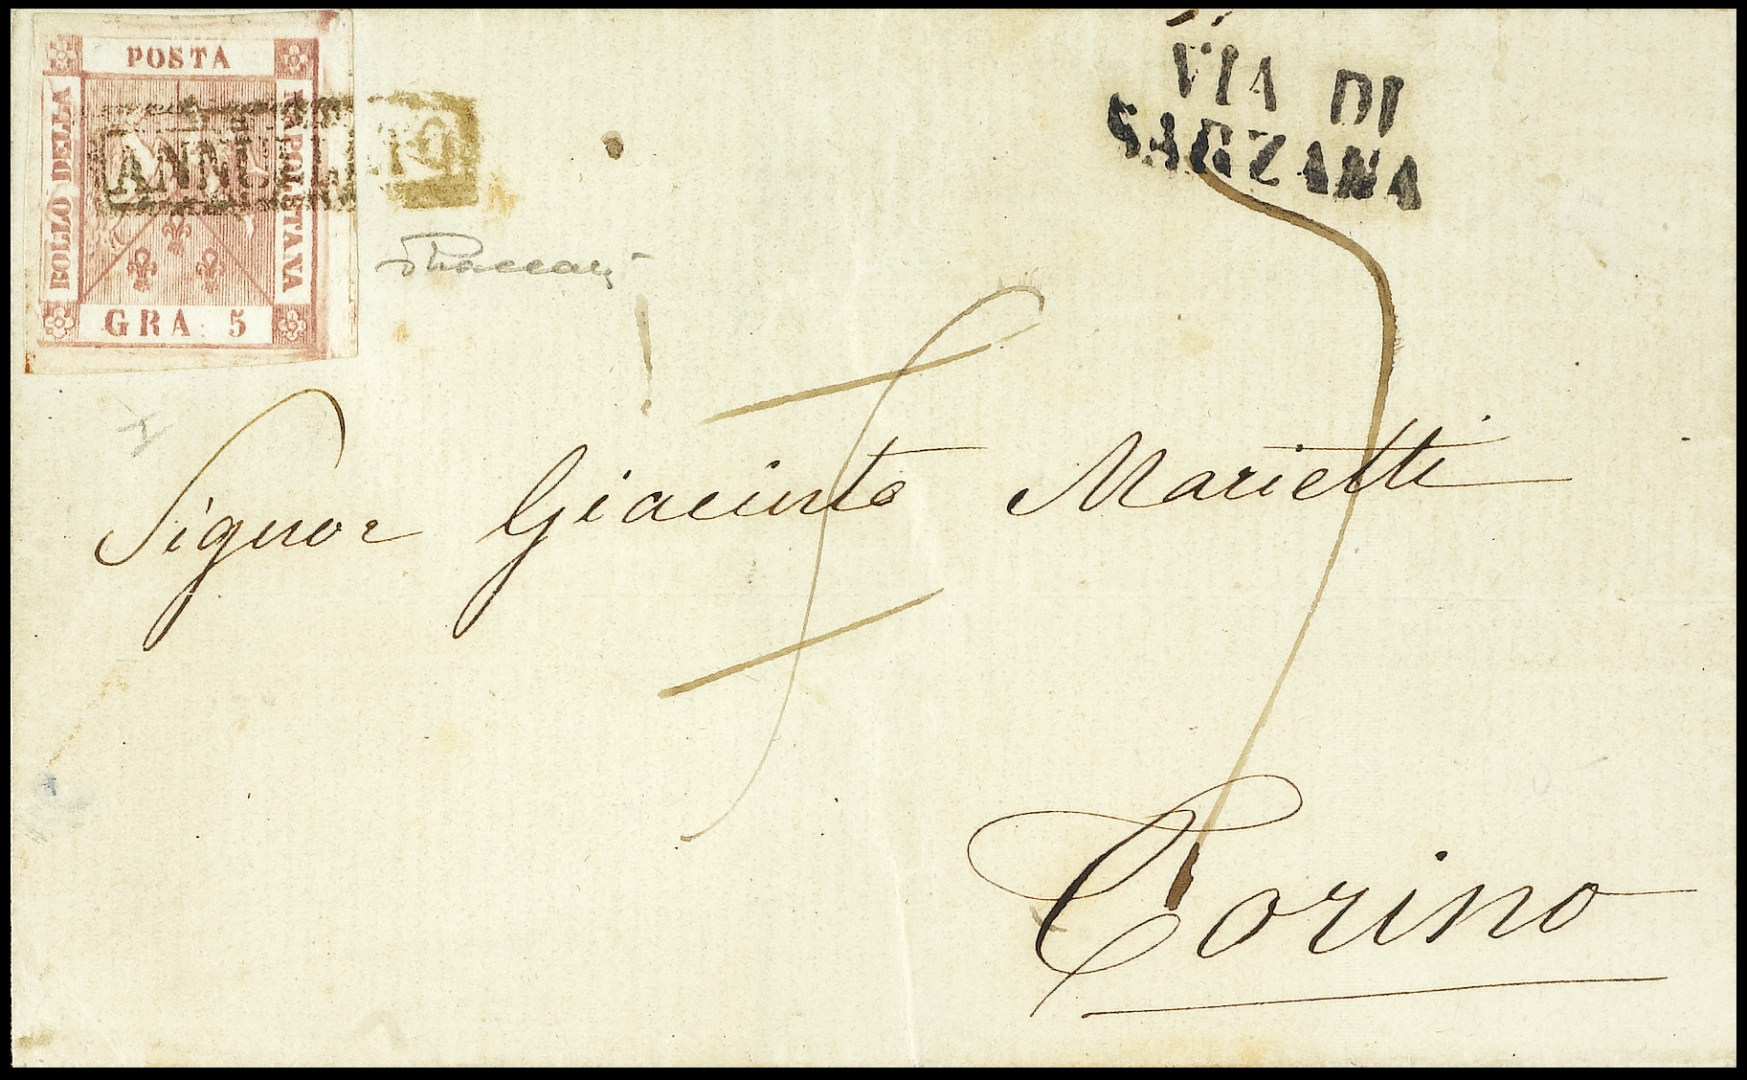 POSTA
BOLLO DELLA
NAPOLETANA
GRA 5
ANNULLATO
VIA DI
SARZANA
Signor Giacinto Marietti
Torino